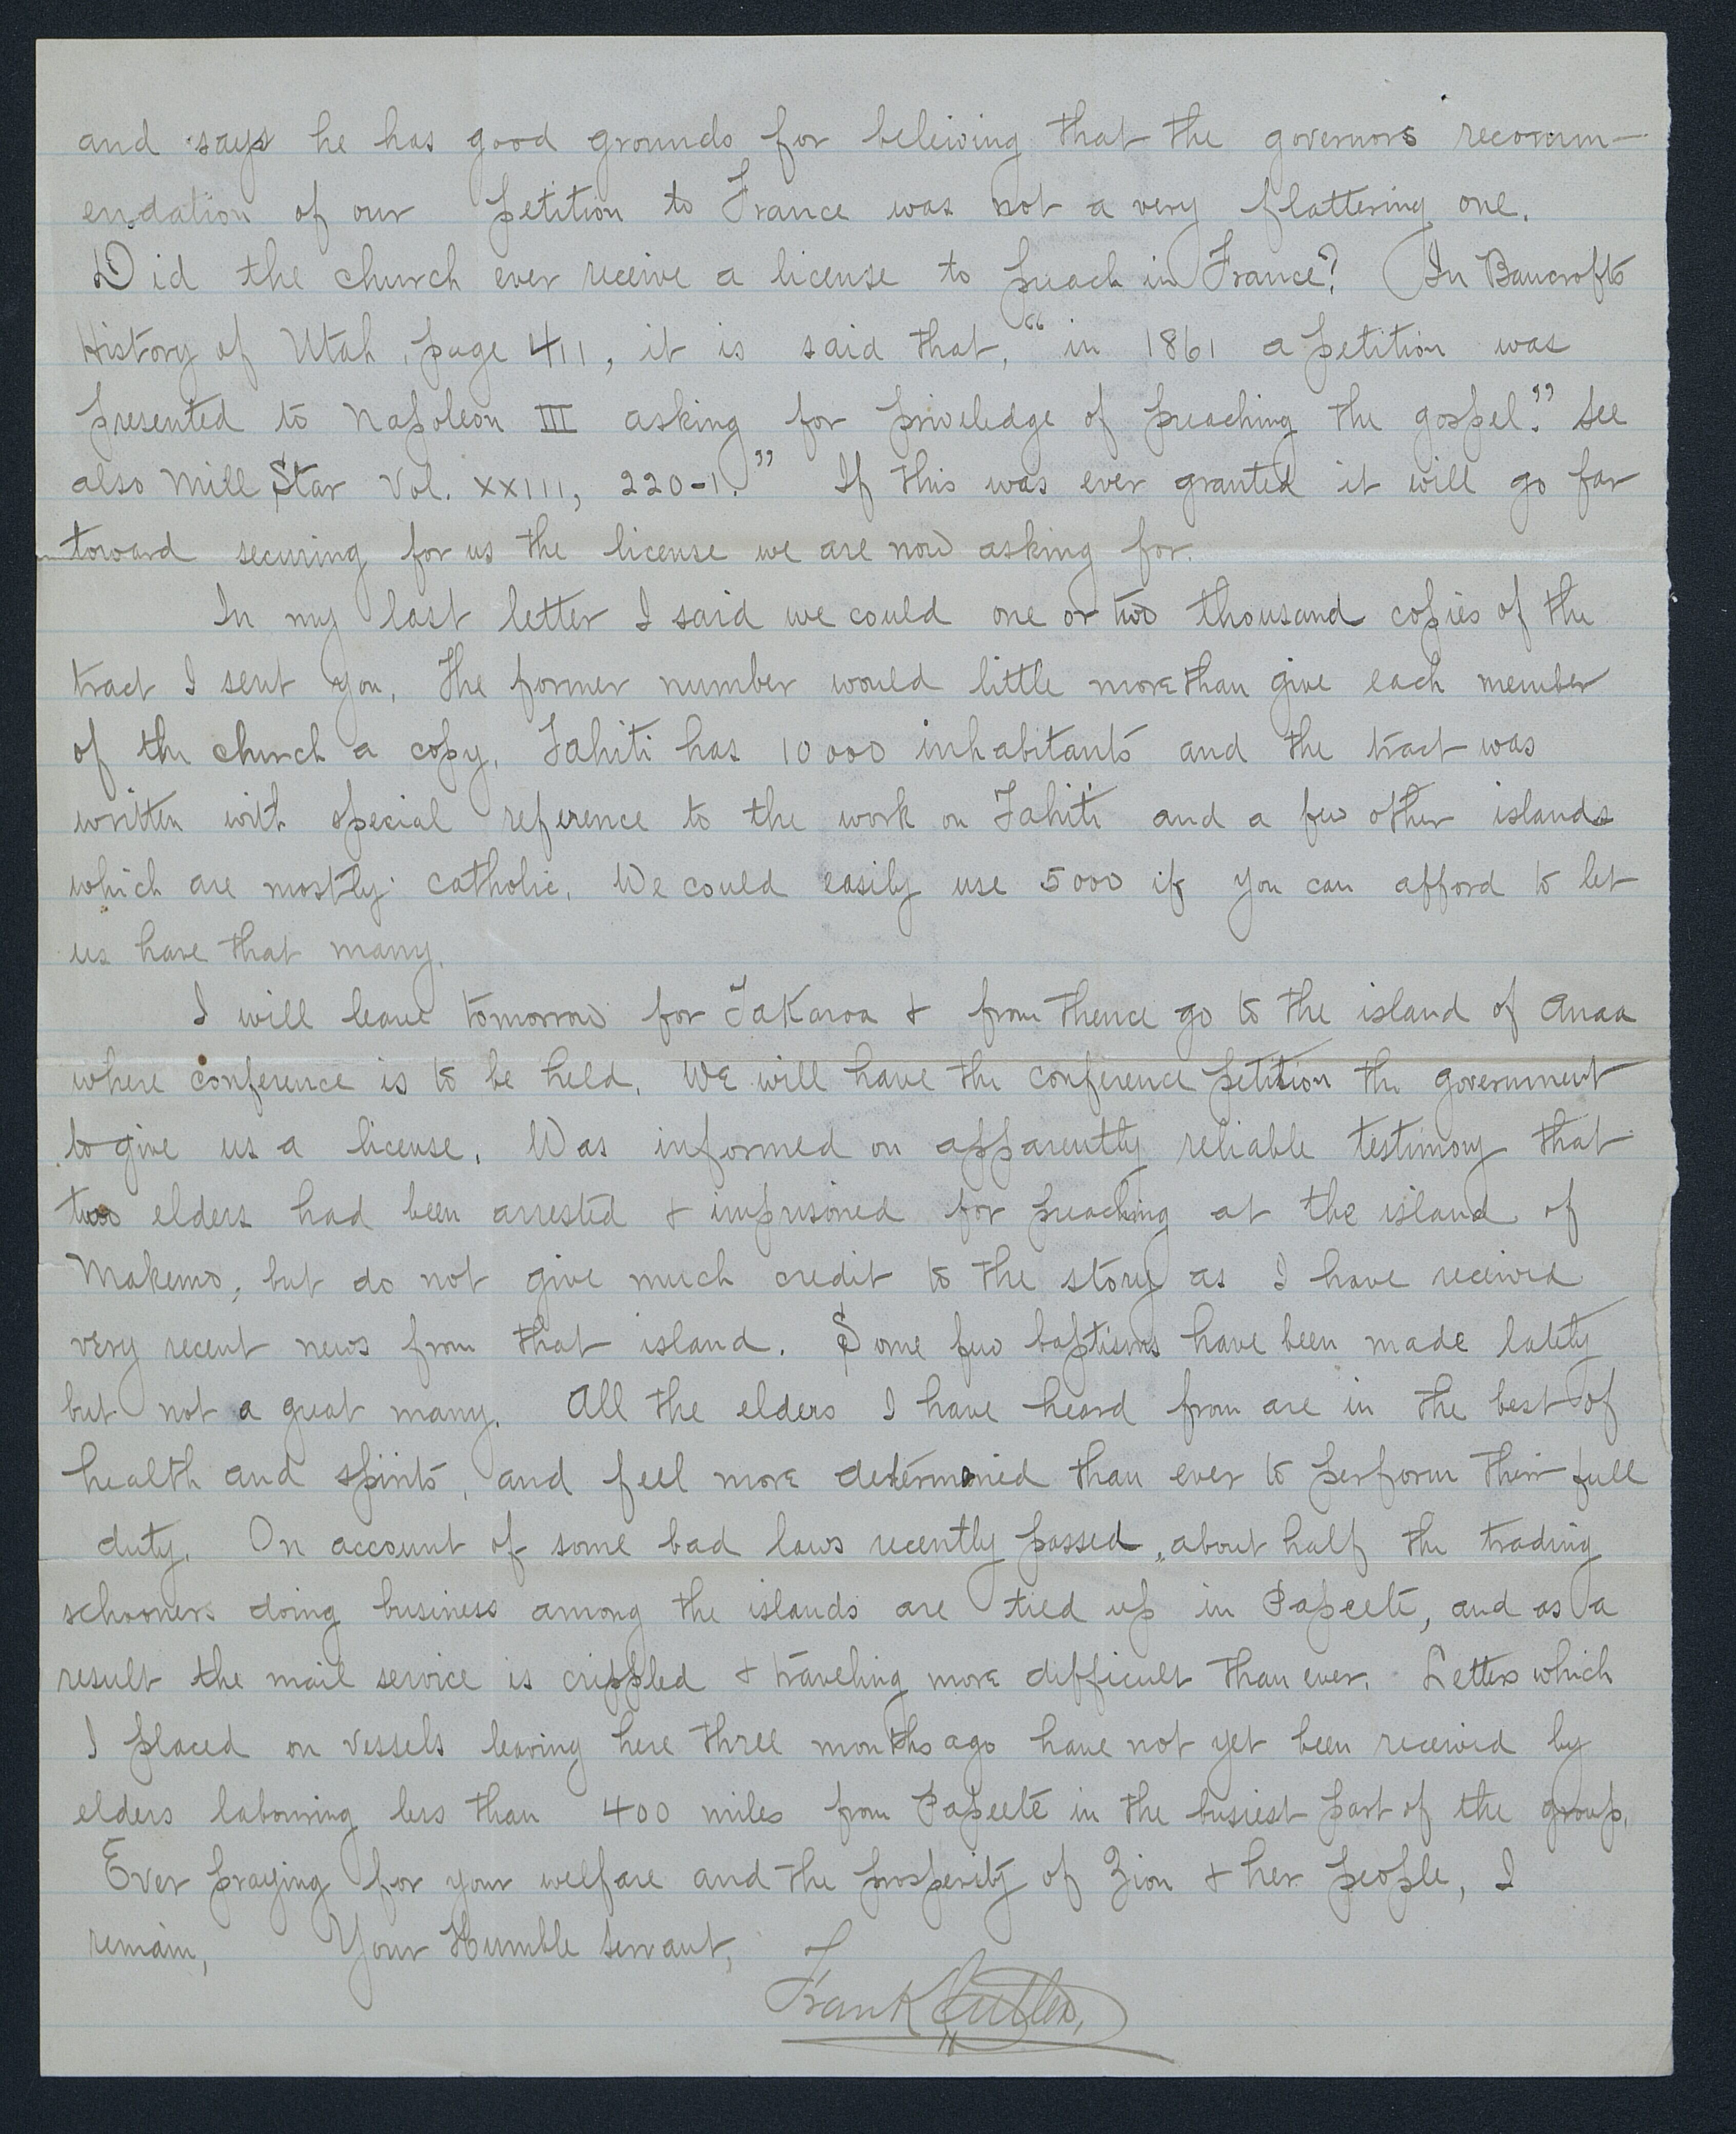 and says he has good grounds for beleiving that the governors recomm-
endation of our petition to France was not a very flattering one.
Did the church ever receive a license to preach in France? In Bancrofts
History of Utah, page 411, it is said that, "in 1861 a petition was
presented to Napoleon III asking for priveledge of preaching the gospel." See
also Mill Star Vol. XXIII, 220-1." If this was ever granted it will go far
toward securing for us the license we are now asking for.
In my last letter I said we could one or two thousand copies of the
tract I sent you. The former number would little more than give each member
of the church a copy. Tahiti has 10000 inhabitants and the tract was
written with special reference to the work on Tahiti and a few other islands
which are mostly catholic. We could easily use 5000 if you can afford to let
us have that many.
I will leave tomorrow for Takaroa & from thence go to the island of Anaa
where conference is to be held. We will have the conference petition the government
to give us a license. Was informed on apparently reliable testimony that
two elders had been arrested & imprisoned for preaching at the island of
Makemo, but do not give much credit to the story as I have received
very recent news from that island. Some few baptisms have been made lately
but not a great many. All the elders I have heard from are in the best of
health and spirits, and feel more determined than ever to perform their full
duty. On account of some bad laws recently passed, about half the trading
schooners doing business among the islands are tied up in Papeete, and as a
result the mail service is crippled & traveling more difficult than ever. Letters which
I placed on vessels leaving here three months ago have not yet been received by
elders labouring less than 400 miles from Papeete in the busiest part of the group.
Ever praying for your welfare and the prosperity of Zion & her people, I
remain, Your Humble Servant,
Frank Cutler,